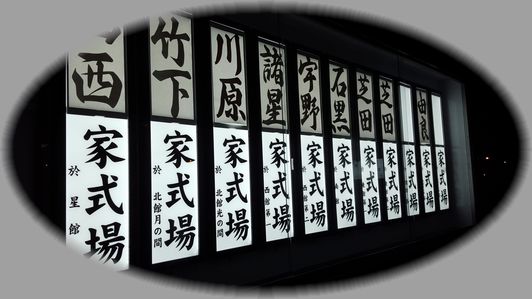 西
家式場
於 星館
竹下
家式場
於 北館月の間
川原
家式場
於 北館光の間
諸星
家式場
於 西館第一
宇野
家式場
於 西館第二
石黒
家式場
芝田
家式場
芝田
家式場
家式場
由良
家式場
家式場